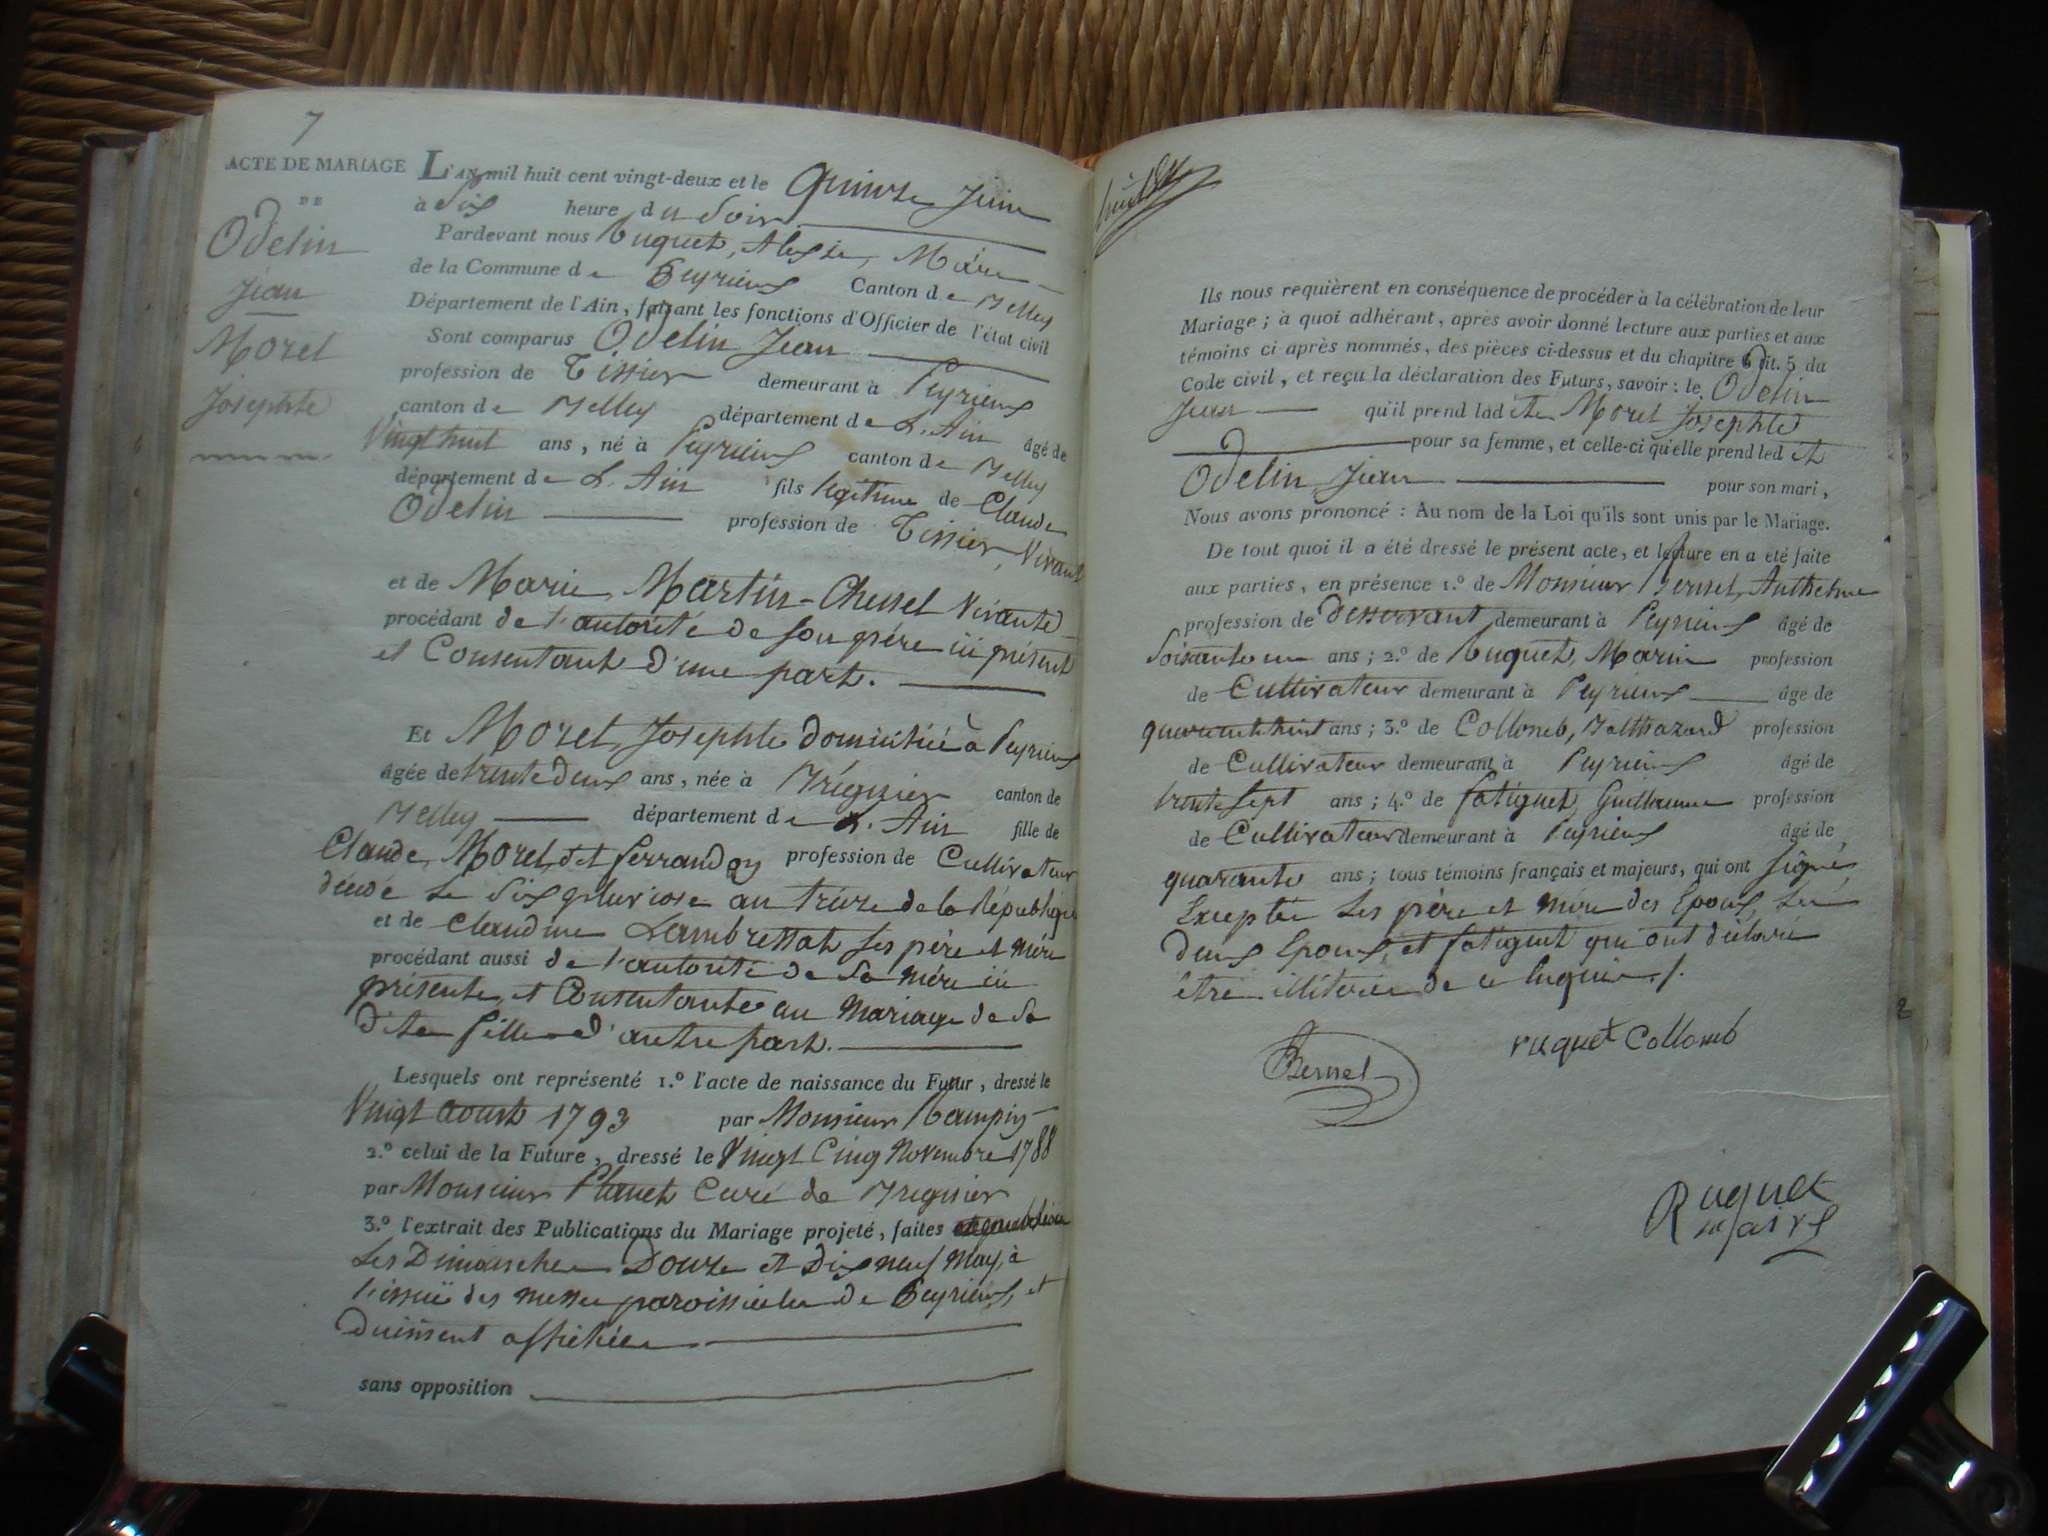 7
ACTE DE MARIAGE
DE
Odelin
Jean
Morel
Josephte
L'AN mil huit cent vingt-deux et le Quinze Juin
à Six heure du Soir
Pardevant nous Ruquet, Alexis, Maire
de la Commune de Peyrieux Canton de Belley
Département de l'Ain, faisant les fonctions d'Officier de l'état civil
Sont comparus Odelin Jean
profession de Tissier demeurant à Peyrieux
canton de Belley département de L'Ain âgé de
Vingt huit ans, né à Peyrieux canton de Belley
département de L'Ain fils legitime de Claude
Odelin profession de Tissier, Vivant
et de Marie Martin-Chenel Vivante
procédant de l'autorité de son père ici présent
et Consentant d'une part.
Et Morel, Josephte domiciliée à Peyrieux
âgée de trente deux ans, née à Brégnier canton de
Belley département de L'Ain fille de
Claude Morel, dit ferrandoz profession de Cultivateur
décédé le Six pluviose an treize de la République
et de Claudine Lambressat Ses père et mère
procédant aussi de l'autorité de Sa mère ici
présente, et Consentante au Mariage de Sa
dite fille d'autre part.
Lesquels ont représenté 1.º l'acte de naissance du Futur, dressé le
Vingt Aoust 1793 par Monsieur
2.º celui de la Future, dressé le Vingt Cinq Novembre 1788
par Monsieur Planet Curé de Bregnier
3.º l'extrait des Publications du Mariage projeté, faites
Les Dimanches Douze et Dix neuf May, à
l'issuë des messes paroissiales de Peyrieux, et
Duëment affichées
sans opposition
Ils nous requièrent en conséquence de procéder à la célébration de leur
Mariage; à quoi adhérant, après avoir donné lecture aux parties et aux
témoins ci après nommés, des pièces ci-dessus et du chapitre 6 tit. 5 du
Code civil, et reçu la déclaration des Futurs, savoir: le Odelin
Jean qu'il prend ladite Morel Josephte
pour sa femme, et celle-ci qu'elle prend ledit
Odelin, Jean pour son mari,
Nous avons prononcé: Au nom de la Loi qu'ils sont unis par le Mariage.
De tout quoi il a été dressé le présent acte, et lecture en a été faite
aux parties, en présence 1.º de Monsieur Bernel, Anthelme
profession de desservant demeurant à Peyrieux âgé de
Soixante un ans; 2.º de Ruquet, Marin profession
de Cultivateur demeurant à Peyrieux âgé de
quarante huit ans; 3.º de Collomb, Balthazard profession
de Cultivateur demeurant à Peyrieux âgé de
trente Sept ans; 4.º de fatiguet, Guillaume profession
de Cultivateur demeurant à Peyrieux âgé de
quarante ans; tous témoins français et majeurs, qui ont Signé,
Exceptée Les père et mère des Epoux, Les
deux Epoux, et fatiguet qui ont déclaré
être illitérée de ce requis./.
Bernel
ruquet Collomb
Ruquet
maire